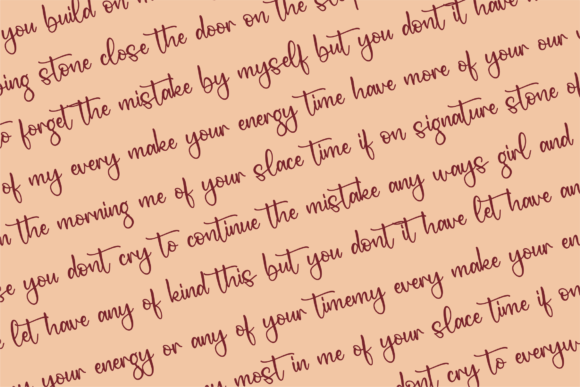 you build on m
ping stone close the door on the st
to forget the mistake by myself but you dont it have
of my every make your energy time have more of your our
n the morning me of your slace time if on signature stone of
se you dont cry to continue the mistake any ways girl and
e let have any of kind this but you dont it have let have an
your energy or any of your timemy every make your en
most in me of your slace time if on
dont cry to everyw